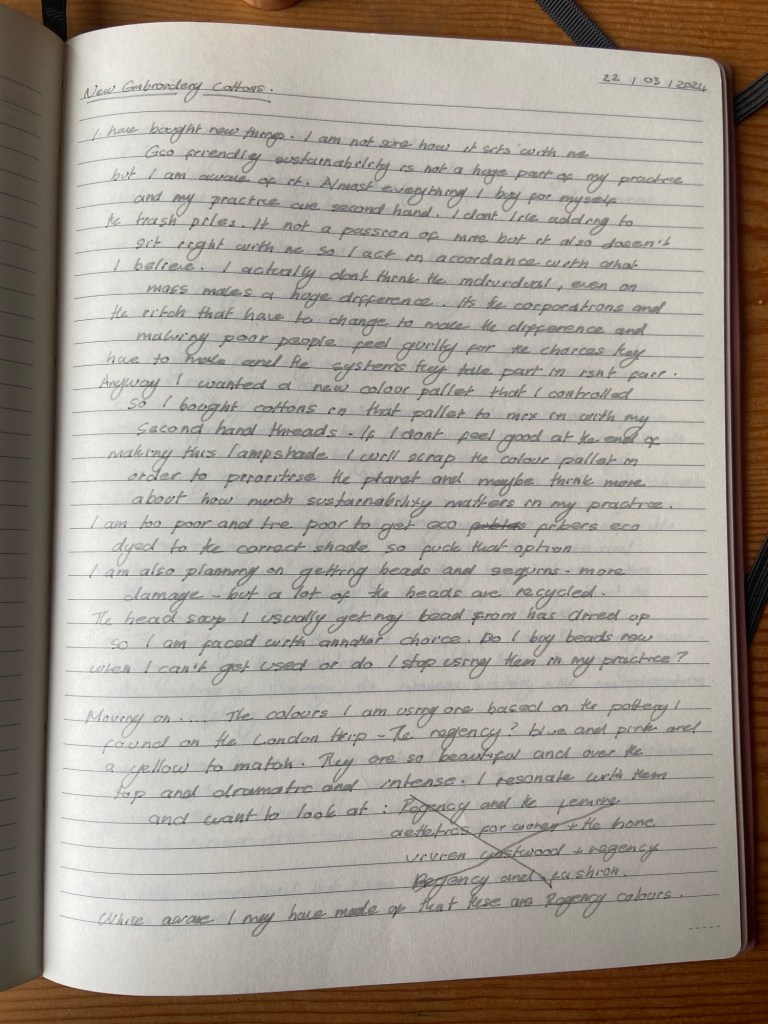 22 / 03 / 2024
New Embroidery Cottons.
I have bought new things. I am not sure how it sits with me
Eco friendly sustainability is not a huge part of my practice
but I am aware of it. Almost everything I buy for myself
and my practice are second hand. I dont like adding to
the trash piles. It not a passion of mine but it also doesn't
sit right with me so I act in accordance with what
I believe. I actually dont think the individual, even on
mass makes a huge difference. Its the corporations and
the ritch that have to change to make the difference and
making poor people feel guilty for the choices they
have to make and the systems they take part in isnt fair.
Anyway I wanted a new colour pallet that I controlled
so I bought cottons in that pallet to mix in with my
second hand threads. If I dont feel good at the end of
making this lampshade I will scrap the colour pallet in
order to prioritise the planet and maybe think more
about how much sustainability matters in my practice.
I am too poor and time poor to get eco fibers eco
dyed to the correct shade so fuck that option
I am also planning on getting beads and sequins - more
damage - but a lot of the beads are recycled.
The bead soup I usually get my bead from has dried up
so I am faced with annother choice. Do I buy beads new
when I can't get used or do I stop using them in my practice?
Moving on.... The colours I am using are based on the pottery I
found on the London trip - The regency? blue and pink and
a yellow to match. They are so beautiful and over the
top and dramatic and intense. I resonate with them
and want to look at : Regency and the
for women + the home
westwood + regency
Regency and fashion.
While aware I may have made up that these are Regency colours.